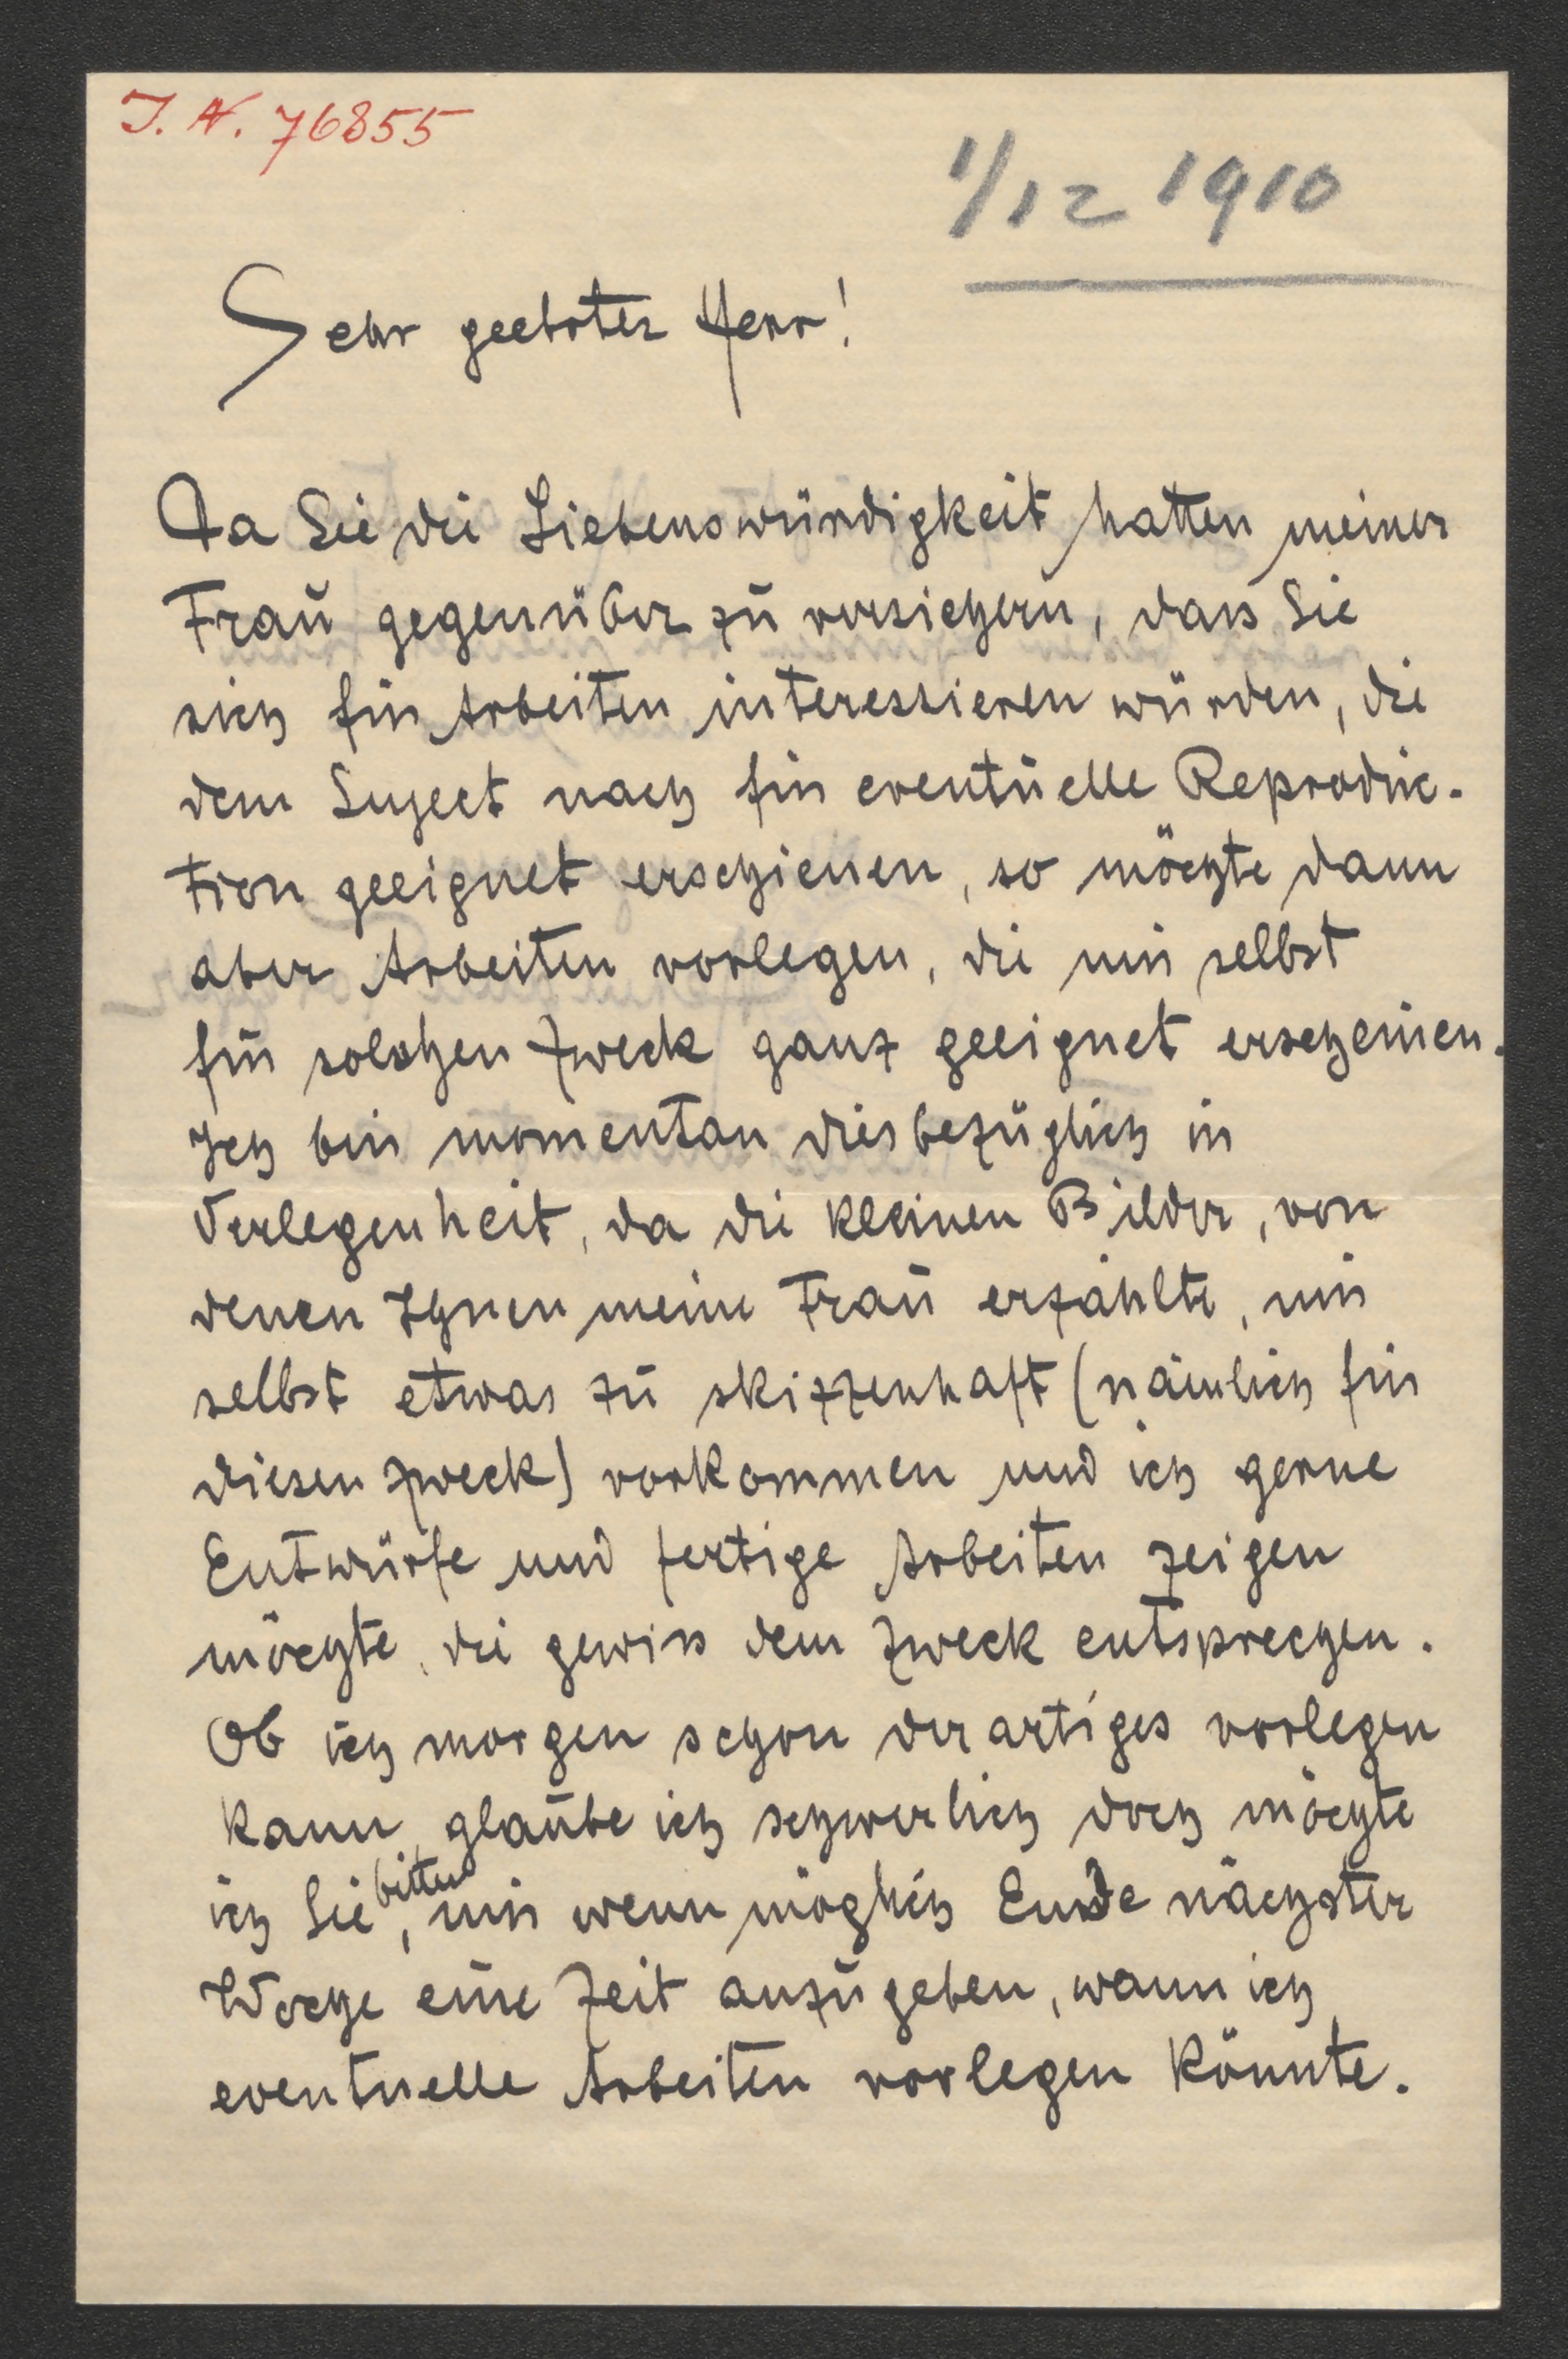 J. N. 76855
1/12 1910
Sehr geehrter Herr!
Da Sie die Liebenswürdigkeit hatten meiner
Frau gegenüber zu versichern, dass Sie
sich für Arbeiten interessieren würden, die
dem Suject nach für eventuelle Reproduc-
tion geeignet erschienen, so möchte dann
aber Arbeiten vorlegen, die mir selbst
für solchen Zweck ganz geeignet erscheinen.
Ich bin momentan diesbezüglich in
Verlegenheit, da die kleinen Bilder, von
denen Ihnen meine Frau erzählte, mir
selbst etwas zu skizzenhaft (nämlich für
diesen Zweck) vorkommen und ich gerne
Entwürfe und fertige Arbeiten zeigen
möchte, die gewiss dem Zweck entsprechen.
Ob ich morgen schon derartiges vorlegen
kann, glaube ich schwerlich doch möchte
ich Sie bitten, mir wenn möglich Ende nächster
Woche eine Zeit anzugeben, wann ich
eventuelle Arbeiten vorlegen könnte.